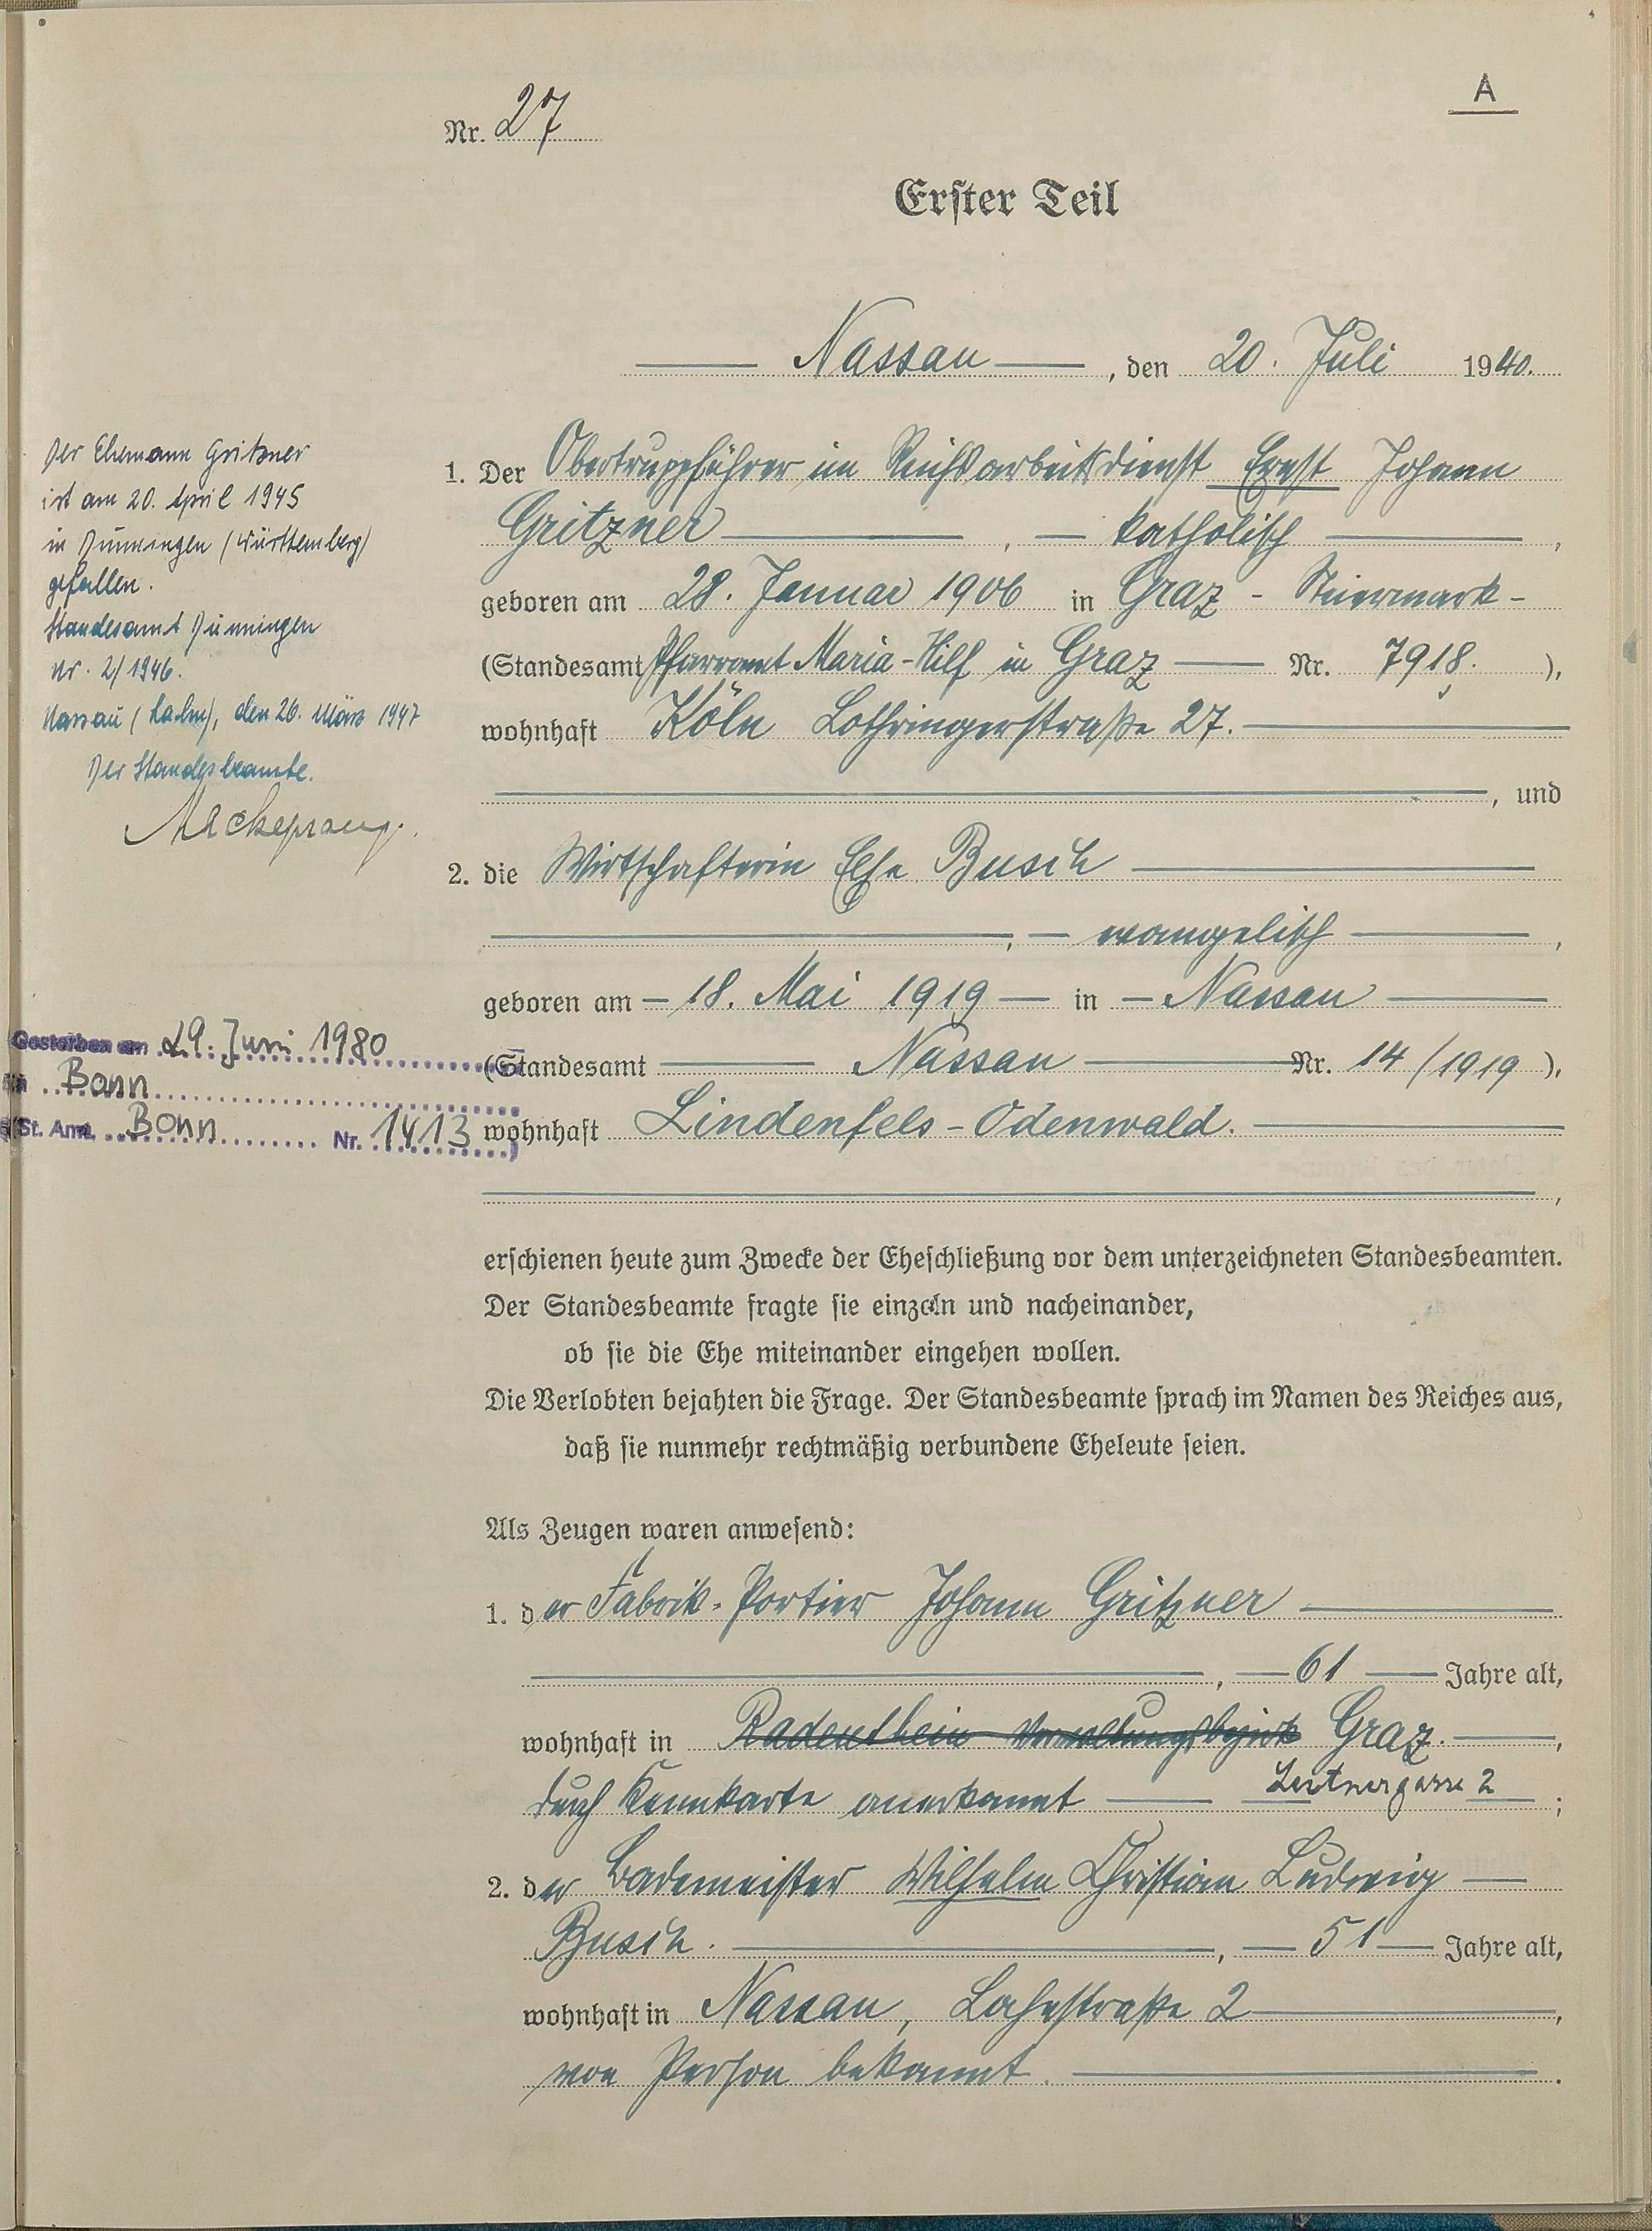 A
Nr. 27
Erster Teil
Nassau, den 20. Juli 1940.
1. Der Obertruppführer im Reichsarbeitsdienst Ernst Johann
Gritzner, katholisch,
geboren am 28. Januar 1906 in Graz - Steiermark -
(Standesamt Pfarramt Maria-Hilf in Graz Nr. 7918.),
wohnhaft Köln Lothringerstraße 27.
, und
2. die Wirtschafterin Else Busch
, evangelisch,
geboren am 18. Mai 1919 in Nassau
(Standesamt Nassau Nr. 14/1919),
wohnhaft Lindenfels-Odenwald.
,
erschienen heute zum Zwecke der Eheschließung vor dem unterzeichneten Standesbeamten.
Der Standesbeamte fragte sie einzeln und nacheinander,
ob sie die Ehe miteinander eingehen wollen.
Die Verlobten bejahten die Frage. Der Standesbeamte sprach im Namen des Reiches aus,
daß sie nunmehr rechtmäßig verbundene Eheleute seien.
Als Zeugen waren anwesend:
1. der Fabrik-Portier Johann Gritzner
, 61 Jahre alt,
wohnhaft in Radenthein Verwaltungsbezirk Graz.,
durch Kennkarte anerkannt Leitnergasse 2;
2. der Bademeister Wilhelm Christian Ludwig
Busch., 51 Jahre alt,
wohnhaft in Nassau, Lahnstraße 2,
von Person bekannt.
Der Ehemann Gritzner
ist am 20. April 1945
in Dunningen (Württemberg)
gefallen.
Standesamt Dunningen
Nr. 2/1946.
Nassau (Lahn), den 26. März 1947
Der Standesbeamte.
Mackeprang.
Gestorben am 29. Juni 1980
in Bonn
(St. Amt. Bonn Nr. 1413)